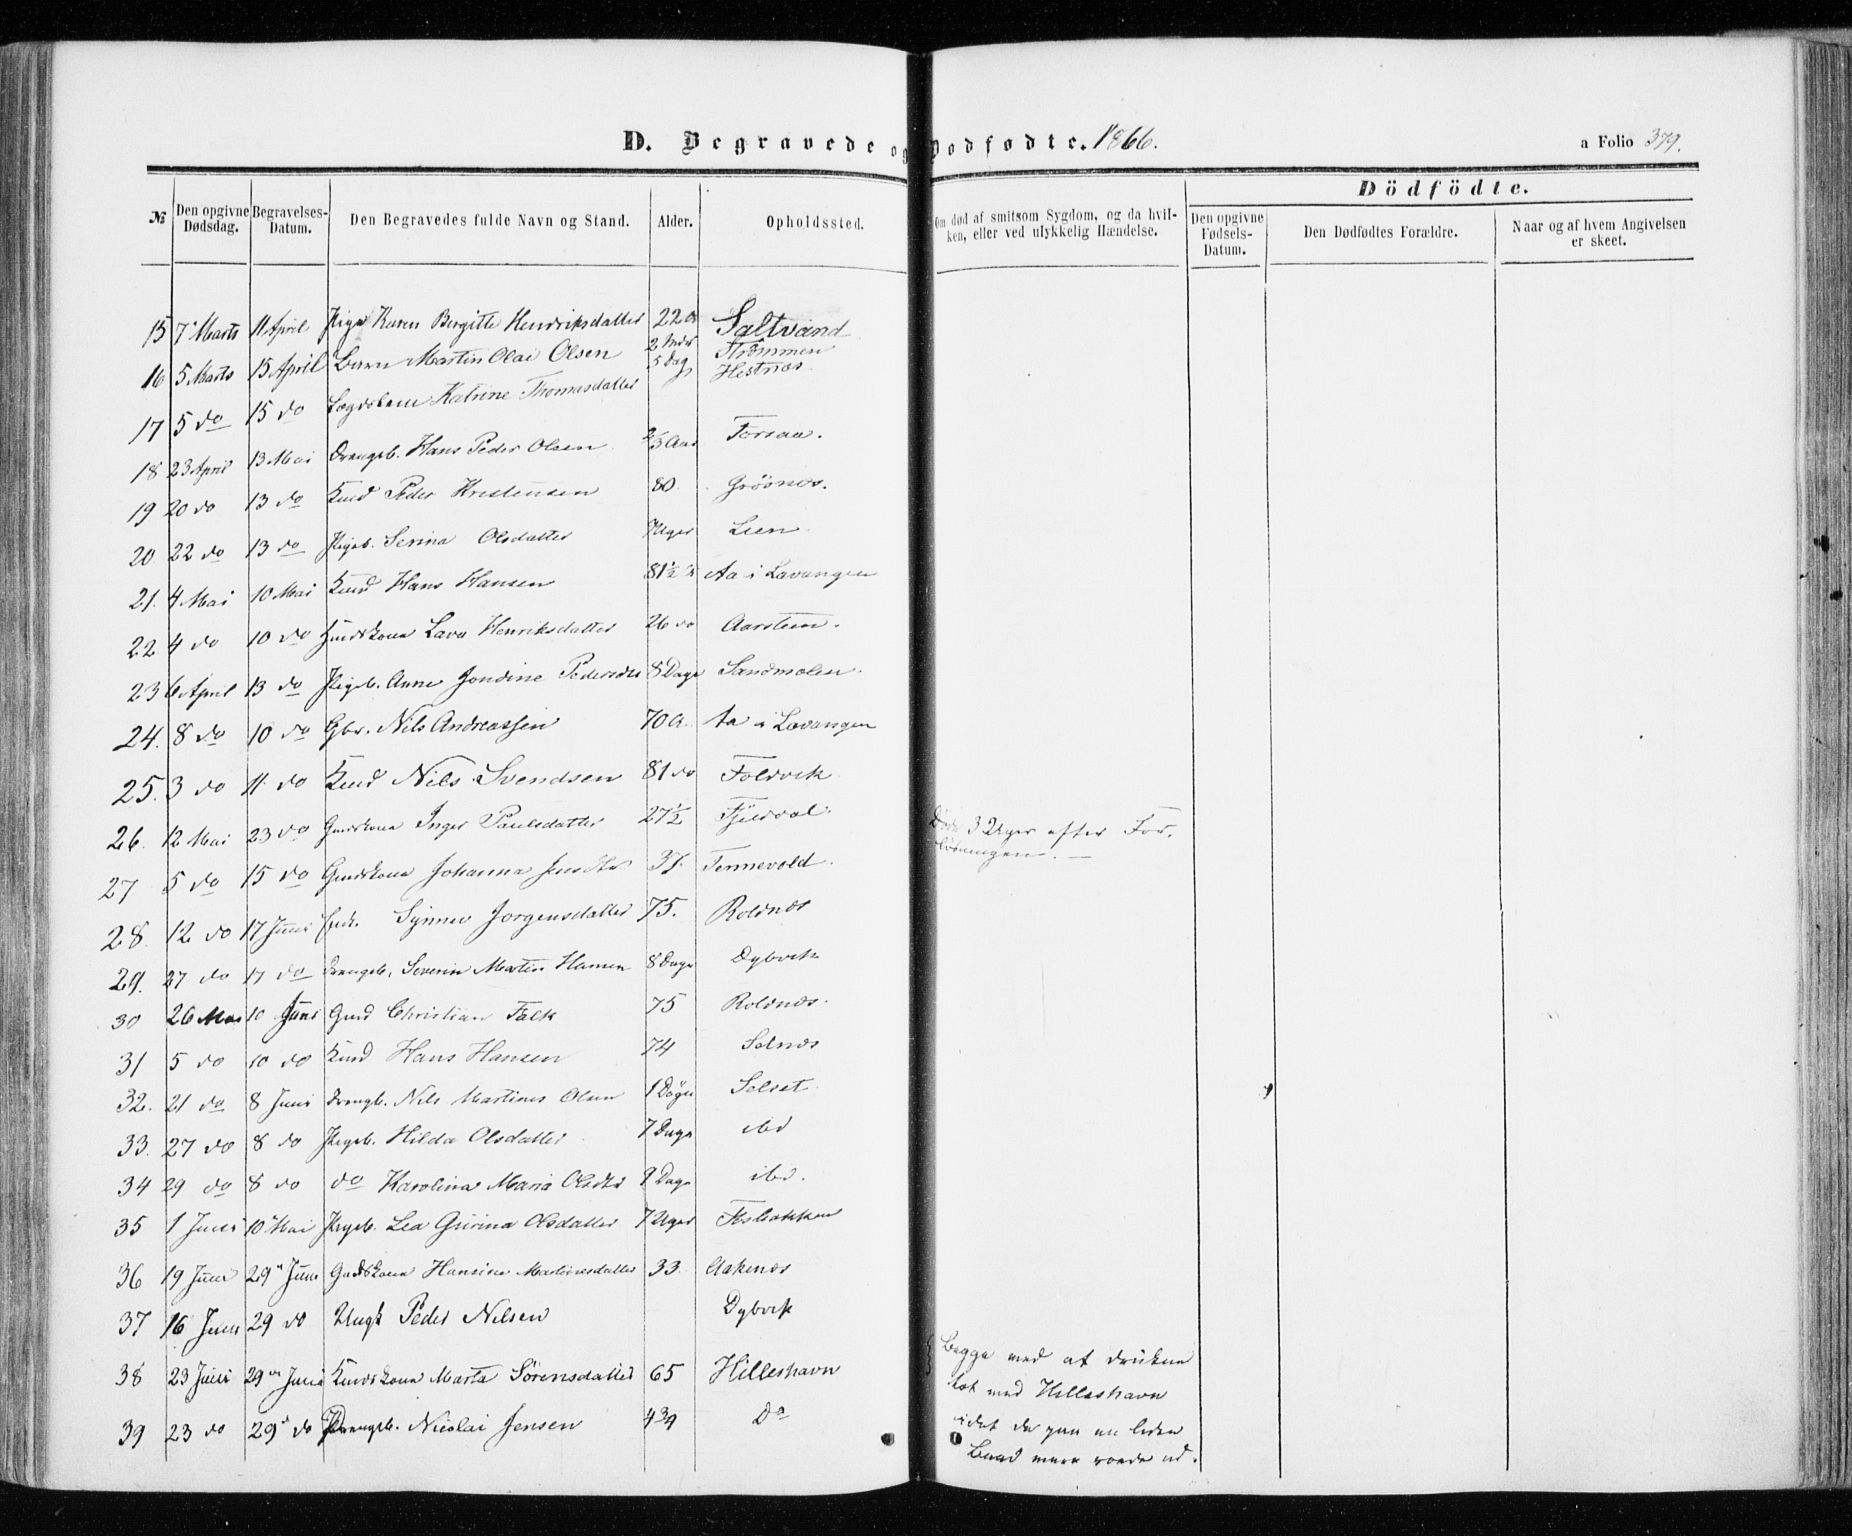 D. Begravede og Dødfødte. 1866.
a Folio 379.
№
Den opgivne Dødsdag.
Begravelses-Datum.
Den Begravedes fulde Navn og Stand.
Alder.
Opholdssted.
Om død af smitsom Sygdom, og da hvilken, eller ved ulykkelig Hændelse.
Dödfödte.
Den opgivne Fødsels-Datum.
Den Dødfødtes Forældre.
Naar og af hvem Angivelsen er skeet.
15 7 Marts 11 April Pige Karen Birgitte Hendriksdatter 22 Saltvand
16 5 Marts 15 April Barn Martin Olai Olsen 2 Mdr 5 Dag Strømmen Hestnæs.
17 5 do 15 do Katrine Thomasdatter
18 23 April 13 Mai Drengeb. Hans Peder Olsen 2/3 Aar Forsaa.
19 20 do 13 do Kaad Peder Kristensen 80 Grøsnes.
20 22 do 13 do Pigeb. Serina Olsdatter Uger Lien
21. 4 Mai 10 Mai Hans Hansen 81½ Aa i Lavangen
22 4 do 10 do Lava Henriksdatter 26 do Aarsteen.
23 6 April 13 do Pigeb. Anne Jondine 8 Dage Sandmolen
24. 8 do 10 do Gbr. Nils Andreassen 70 A. Aa i Lavangen
25. 3 do 11 do Nils Svendsen 81 do Foldvik
26. 12 Mai 23 do Inger Paulsdatter 27½ Fjordvol.
Død 3 Uger efter Forløsningen.
27 5 do 15 do Johanna 37. Tennevold.
28. 12 do 17 Juni Synnev Jørgensdatter 75. Roldnæs
29. 27 do 17 do Drengeb. Severin Martin Hansen 8 Dage Dybvik
30 26 Mai 10 Juni Christian Falk 75 Roldnæs.
31 5 do 10 do Hans Hansen 74 Selnæs
32. 21 do 8 Juni Drengeb. Nils Martinus Olsen 1 Døgn Selset.
33. 27 do 8 do Pigeb. Hilda Olsdatter 7 Dage ibd
34 29 do 8 do do Karolina Maria 9 Dage ibd.
35 1 Juni 10 Mai Pigeb. Lea Gurina Olsdatter 7 Uger
36 19 Juni 29 Juni Hansine Martinusdatter 33 Aakenes
37 16 Juni 29 do Ungk Peder Nilsen Dybvik
38 23 Juni 29 Juni Marta Sørensdatter 65 Hilleshavn
39 23 do 29 do Drengeb. Nicolai Jensen 4¾ Do
Begge med at drukne
tæt ved Hilleshavn
idet de paa en liden
Baad vare roede ud.